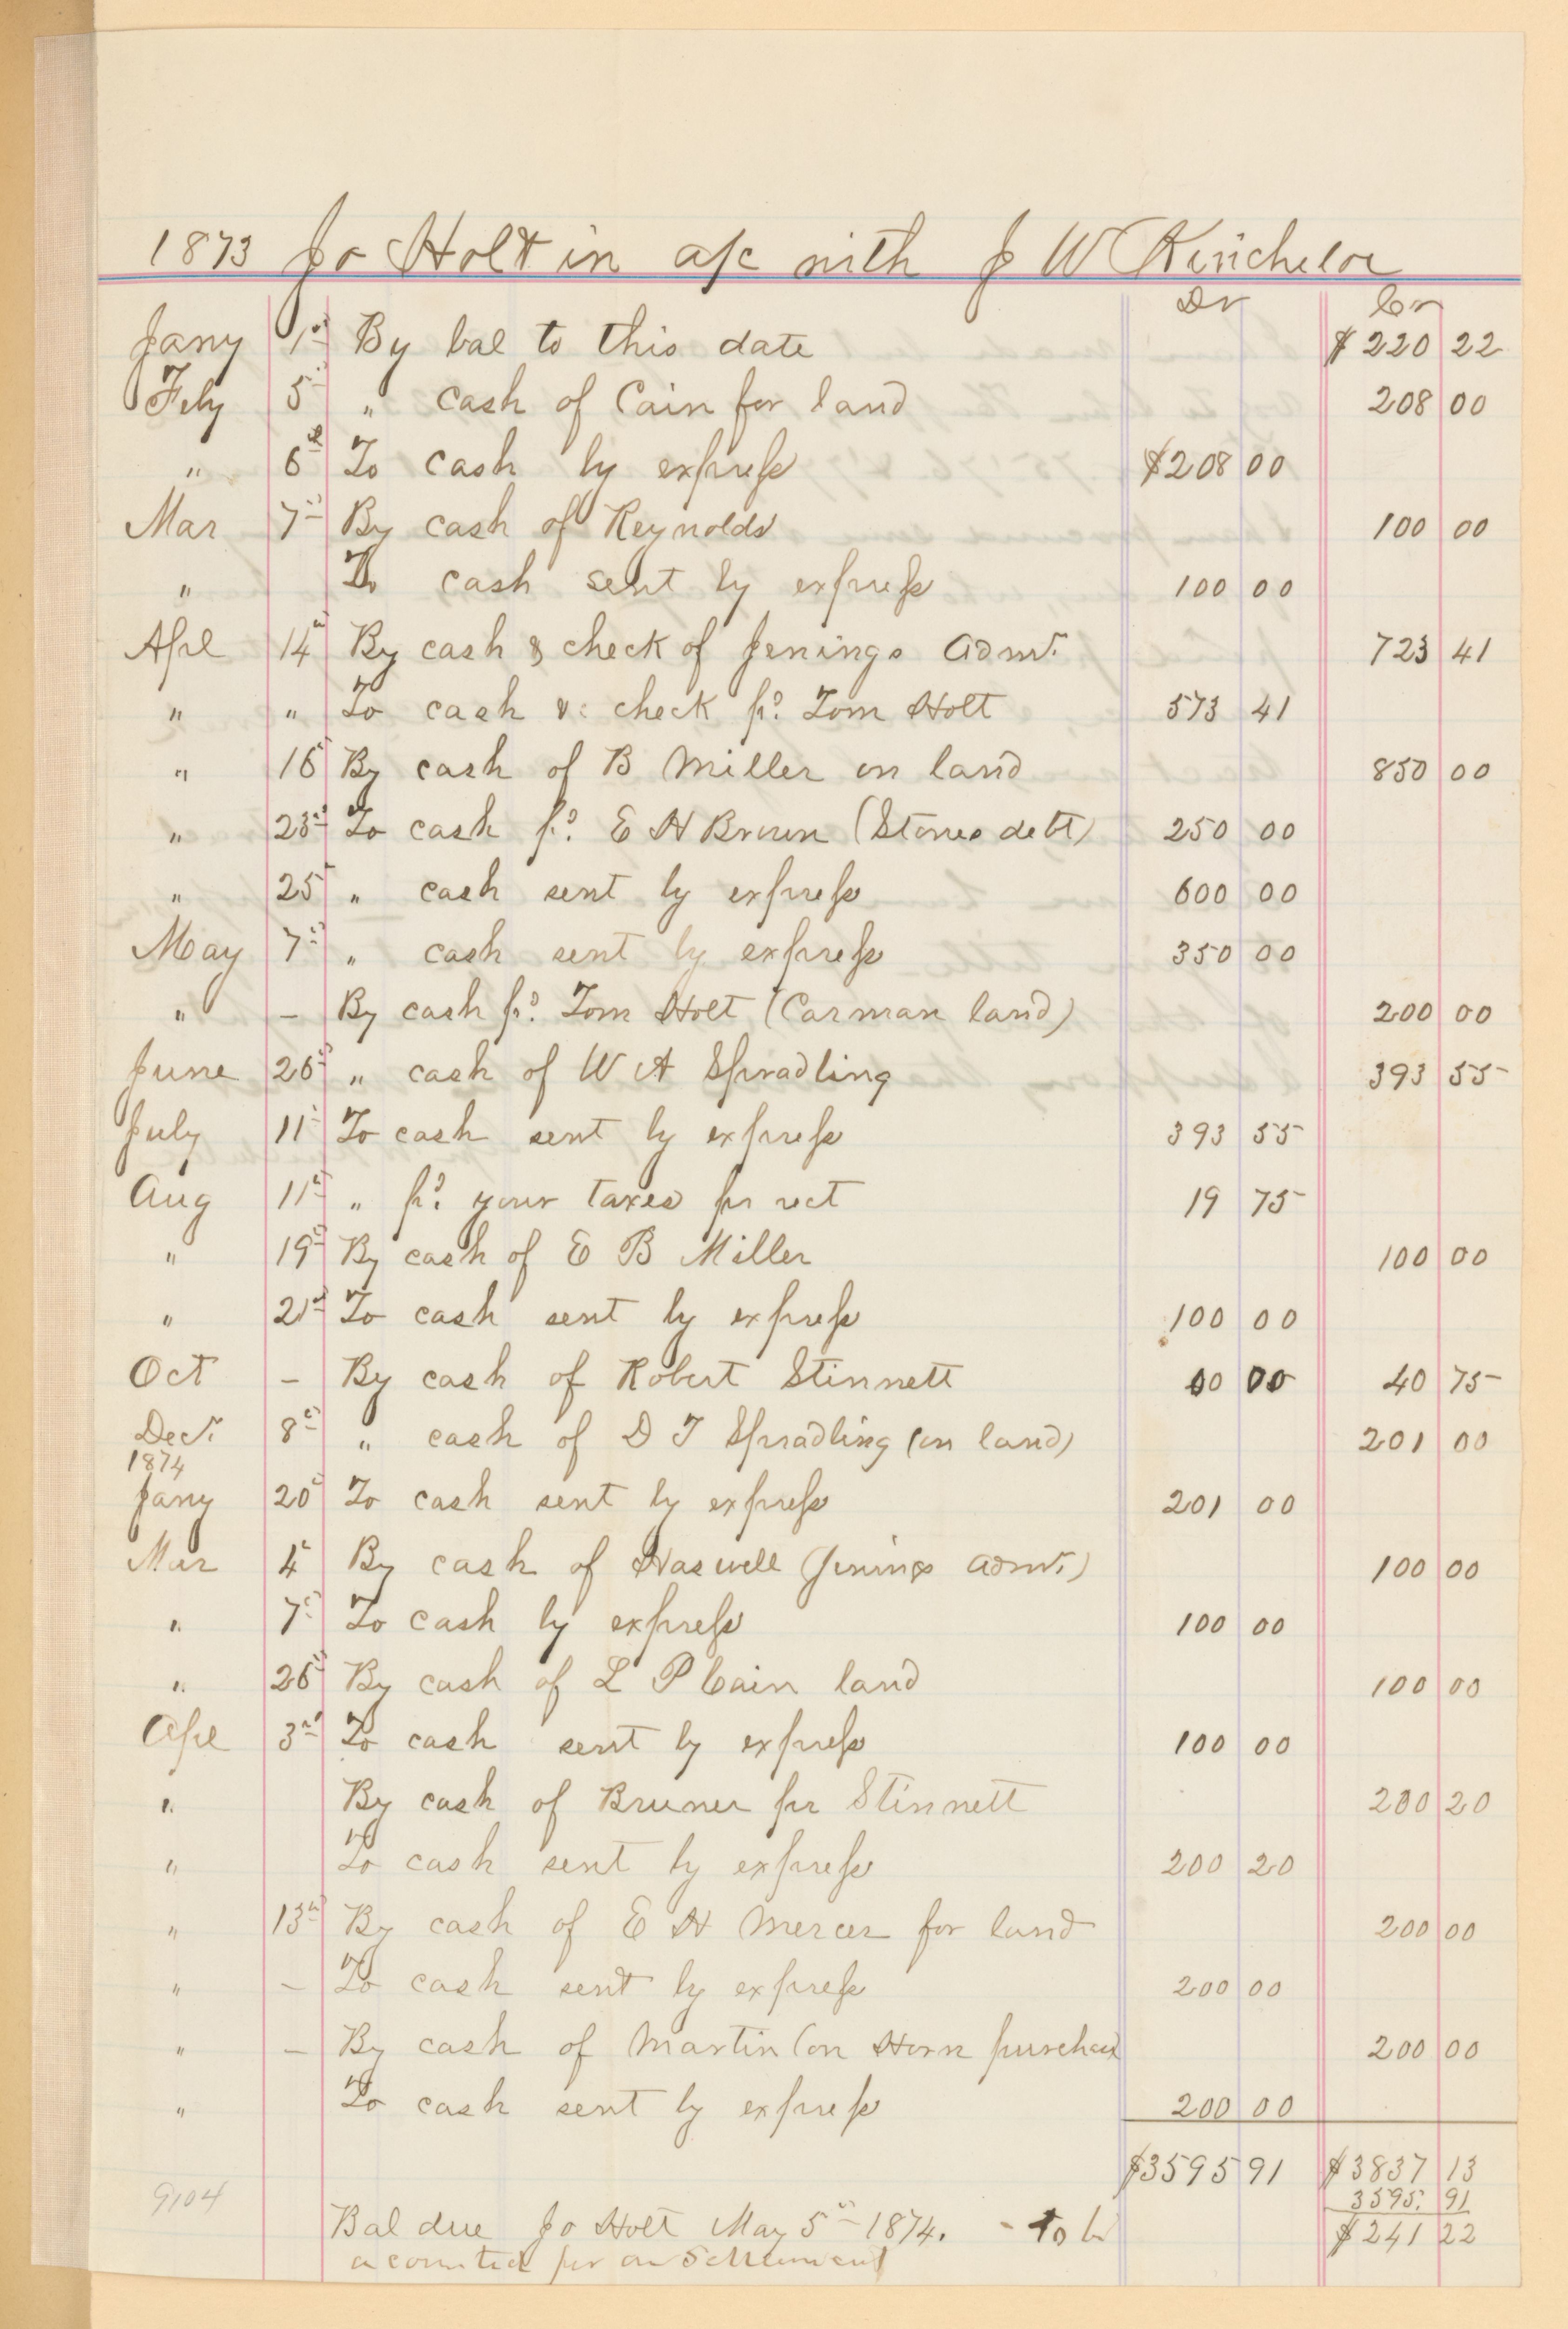 1873 Jo Holt in a/c with J W Kincheloe
Dr Cr
Jany 1st By bal to this date $220 22
Feby 5th " cash of Cain for land 208 00
" 6th To cash by express $208 00
Mar 7th By cash of Reynolds 100 00
" To cash sent by express 100 00
Apl 14th By cash & check of Jenings Admr. 723 41
" " To cash & check pd. Tom Holt 573 41
" 16th By cash of B Miller on land 850 00
" 23rd To cash pd. E H Brown (Stones debt) 250 00
" 25 " cash sent by express 600 00
May 7th " cash sent by express 350 00
" – By cash pd. Tom Holt (Carman land) 200 00
June 26th " cash of W A Spradling 393 55
July 11th To cash sent by express 393 55
Aug 11th " pd. your taxes pr rect 19 75
" 19th By cash of E B Miller 100 00
" 21st To cash sent by express 100 00
Oct – By cash of Robert Stinnett 00 00 40 75
Decr. 8th " cash of D T Spradling (on land) 201 00
1874
Jany 20th To cash sent by express 201 00
Mar 4th By cash of Haswell (Jenings Admr.) 100 00
" 7th To cash by express 100 00
" 26th By cash of L P Cain land 100 00
Apl 3rd To cash sent by express 100 00
" By cash of Bruner pr Stinnett 200 20
" To cash sent by express 200 20
" 13th By cash of E H Mercer for land 200 00
" – To cash sent by express 200 00
" – By cash of Martin (on Horn purchase 200 00
" To cash sent by express 200 00
$3595 91 $3837 13
3595. 91
Bal due Jo Holt May 5th 1874. - to be $241 22
accounted for on Settlement
9104